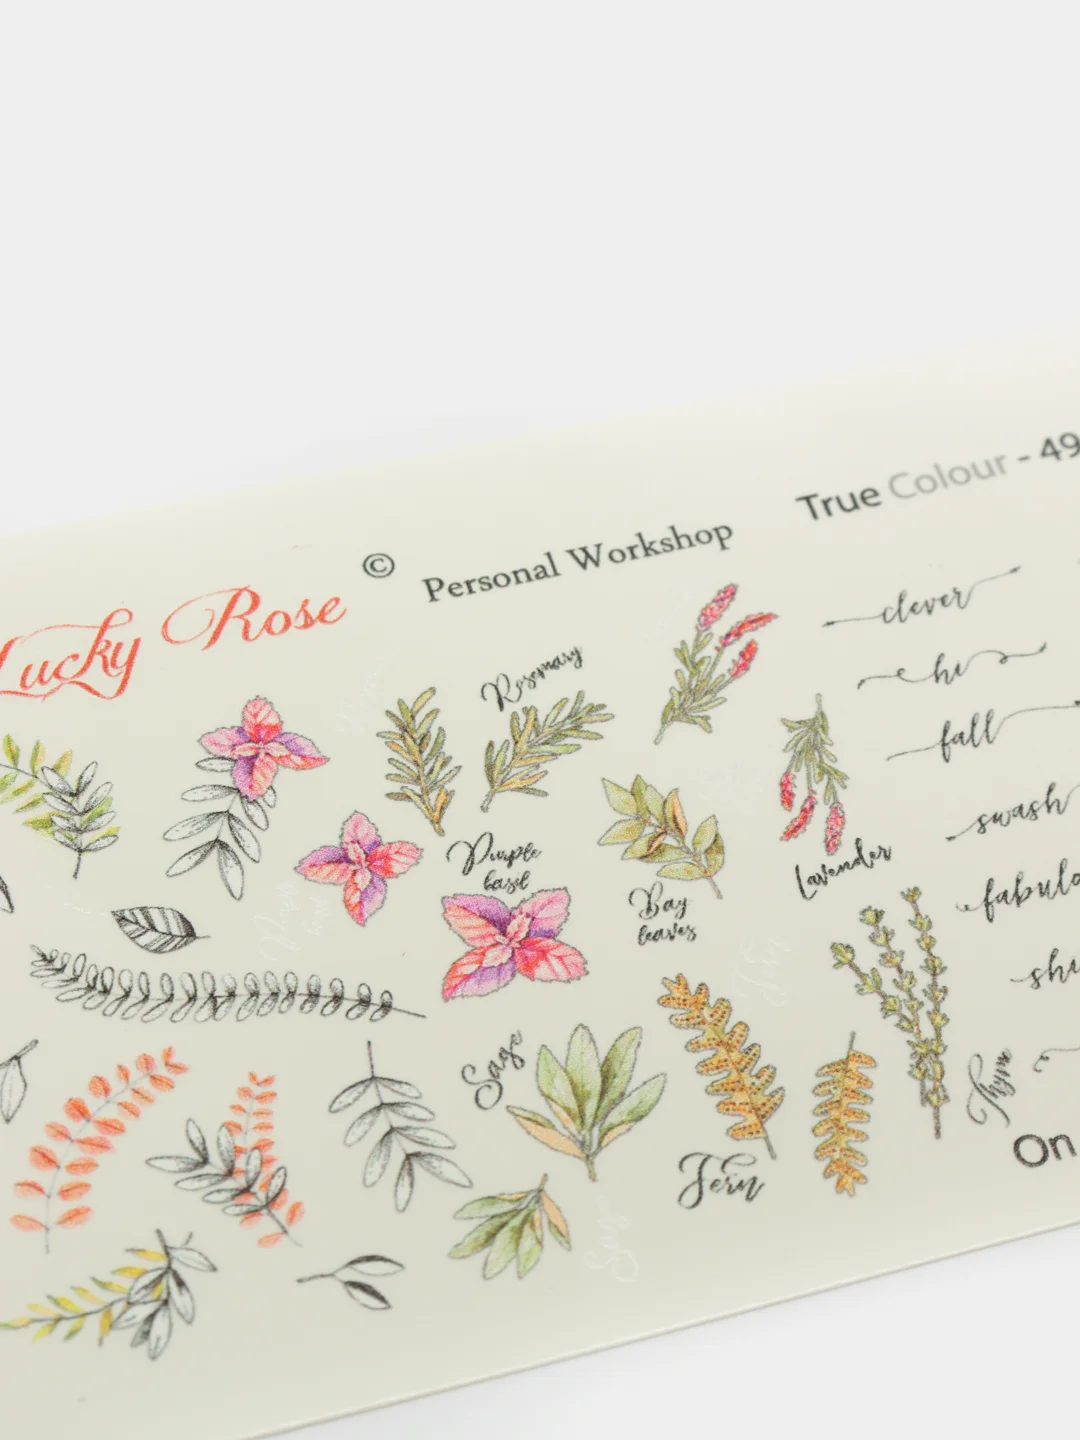 Lucky Rose
©
Personal Workshop
True Colour - 49
Rosemary
Purple
basil
Bay
leaves
Lavender
Sage
Fern
Thyme
clever
hi
fall
swash
On
Sage